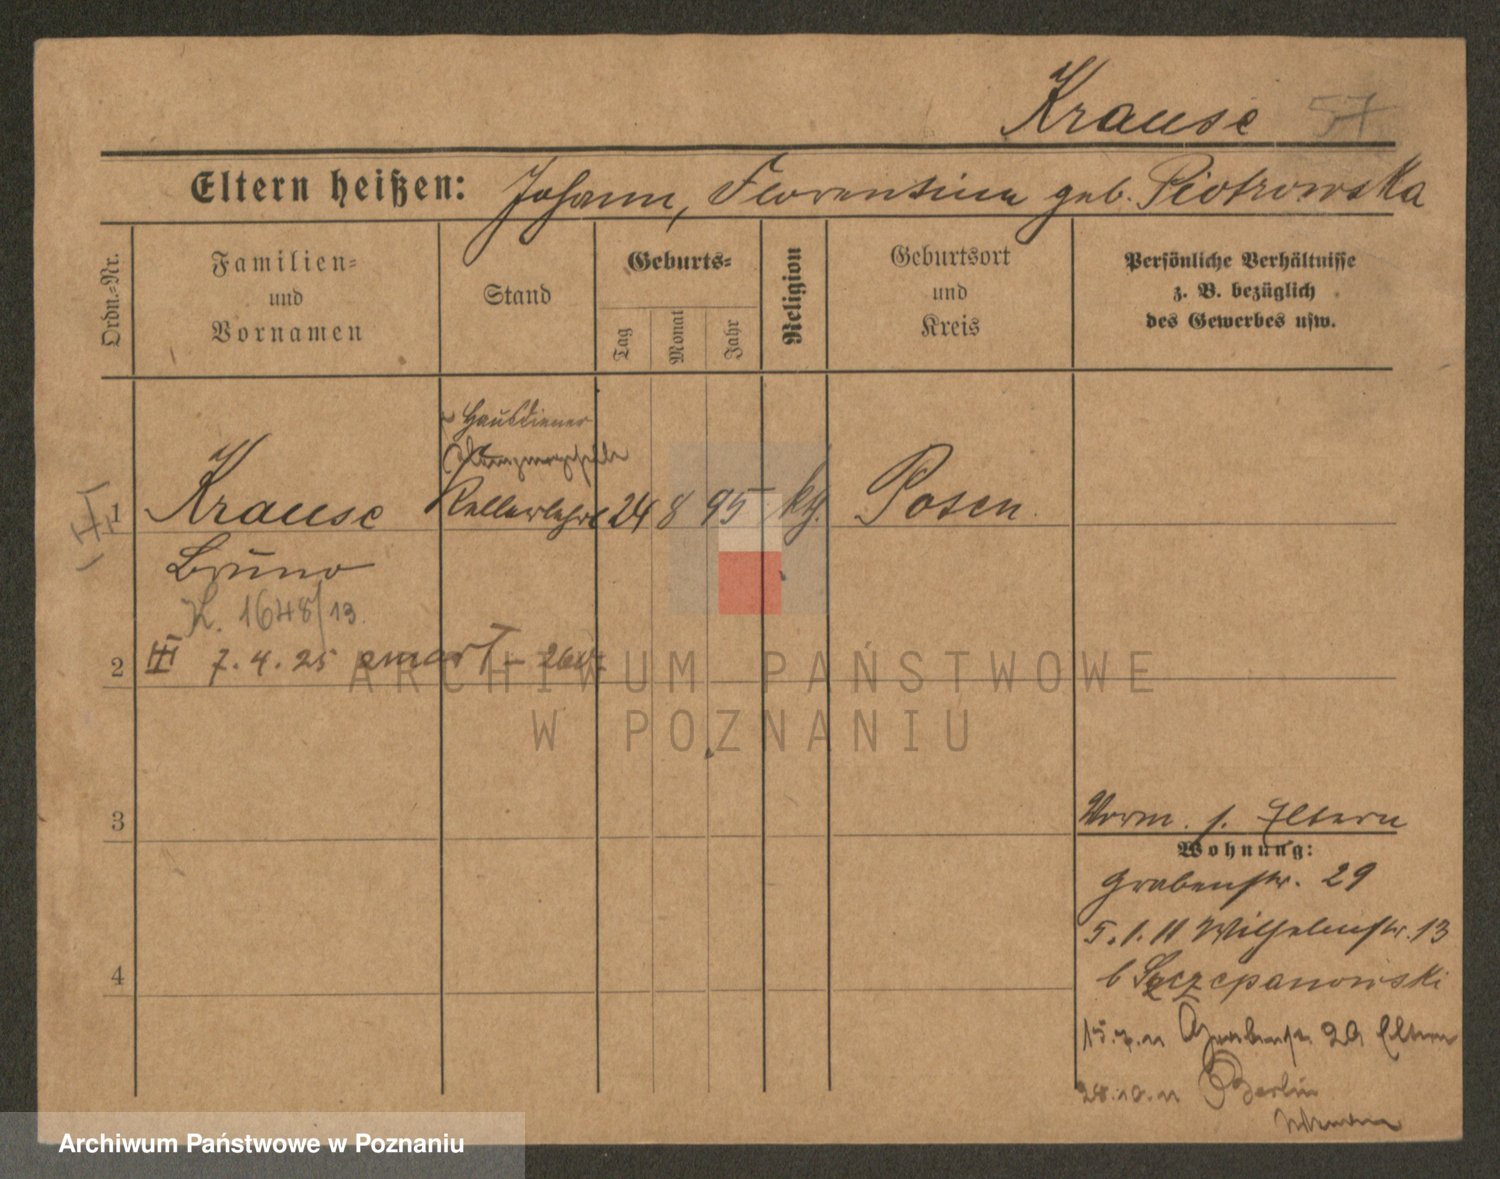 Krause 57
Eltern heißen: Johann, Florentina geb. Piotrowska
Ordn.=Nr.
Familien=
und
Vornamen
Stand
Geburts=
Tag
Monat
Jahr
Religion
Geburtsort
und
Kreis
Persönliche Verhältnisse
z. B. bezüglich
des Gewerbes usw.
Hausdiener
1 Krause Kellnerlehrl 24 8 95 kth. Posen
Bruno
K. 1648/13.
2 III 7.4.25 zmarł
3
4
Vorm. s. Eltern
Wohnung:
Grabenstr. 29
5.1.11 Wilhelmstr. 13
b Szczepanowski
15.7.11 Grabenstr. 29 Eltern
28.10.11 Berlin
ARCHIWUM PAŃSTWOWE
W POZNANIU
Archiwum Państwowe w Poznaniu